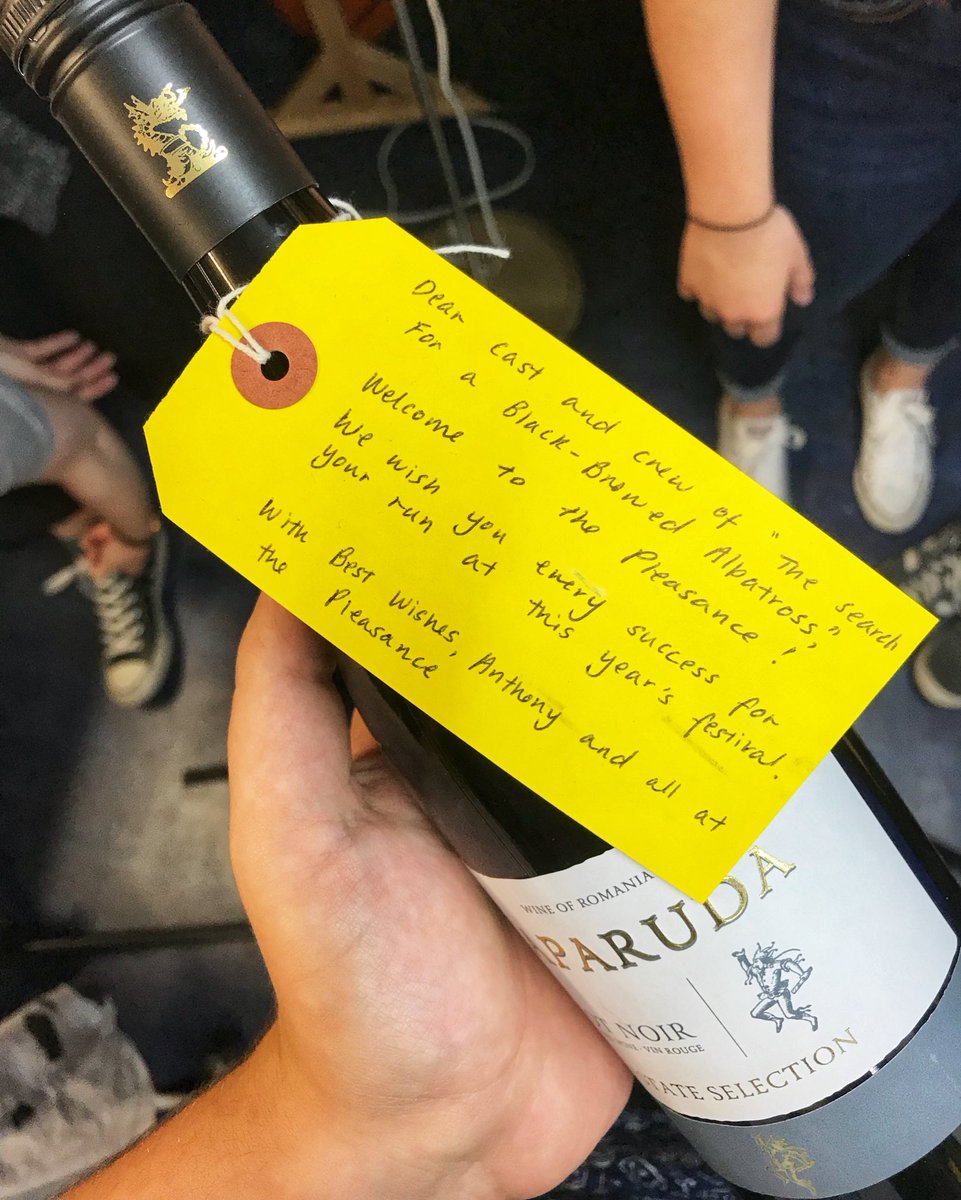 Dear cast and crew of "The search
For a Black-Browed Albatross,"
Welcome to the Pleasance!
We wish you every success for
your run at this year's festival.
With Best Wishes, Anthony and all at
the Pleasance
WINE OF ROMANIA
PARUDA
NOIR
VIN ROUGE
SELECTION